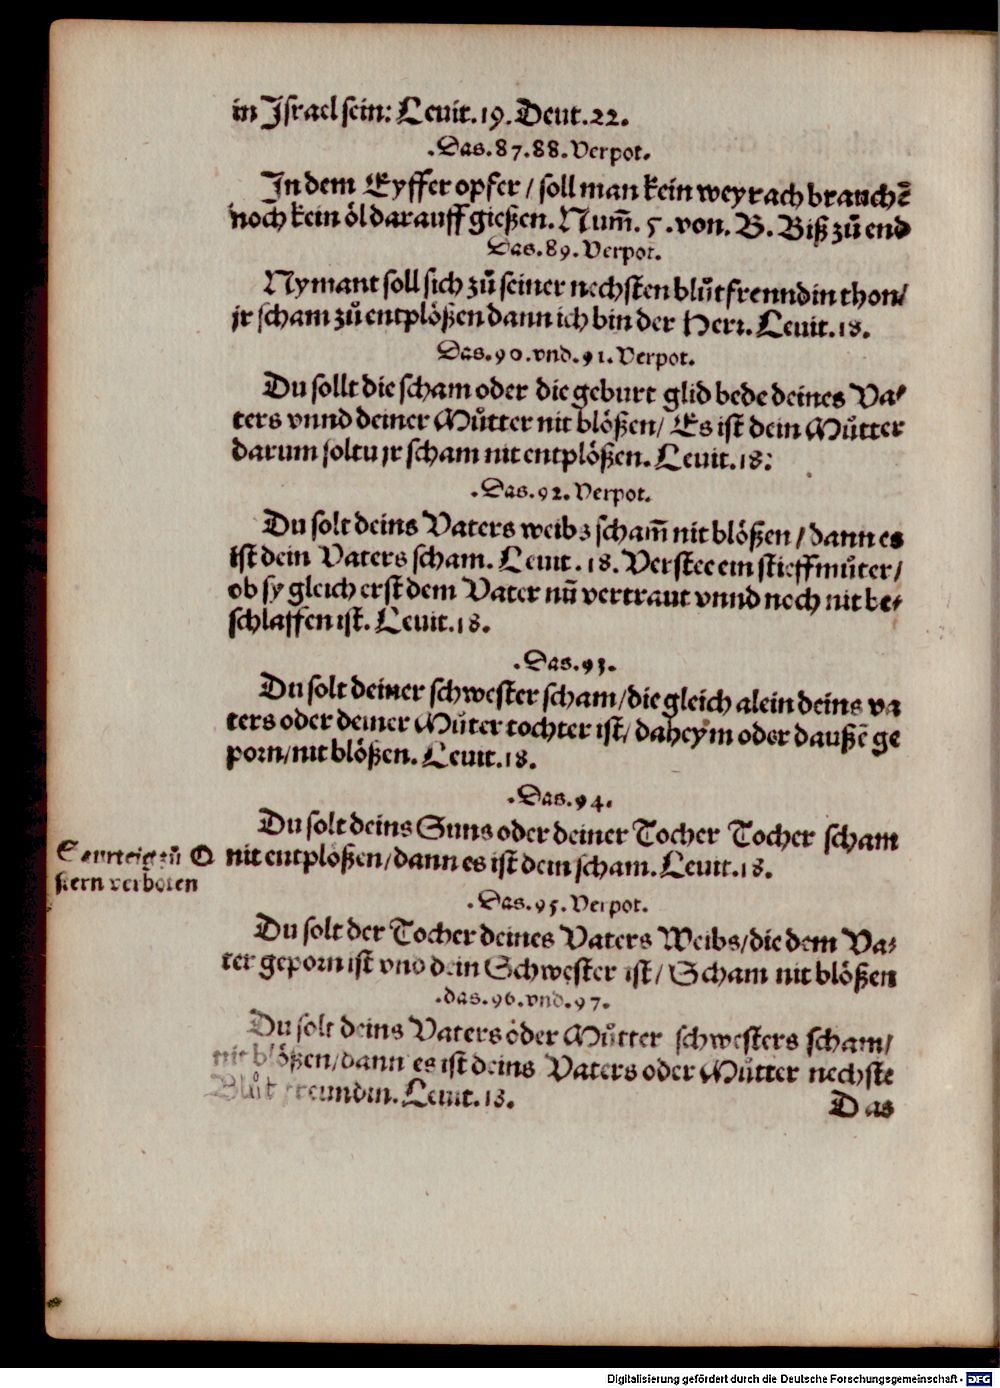 in Jſrael ſein: Leuit. 19. Deut. 22.
.Das. 87. 88. Verpot.
In dem Eyffer opfer / ſoll man kein weyrach brauchē
noch kein öl darauff gießen. Num̃. 5. von. B. Biß zů end
Das. 89. Verpot.
Nymant ſoll ſich zů ſeiner nechſten blůtfrenndin thon/
jr ſcham zů entplößen dann ich bin der Herr. Leuit. 18.
Das. 90. vnd. 91. Verpot.
Du ſollt die ſcham oder die geburt glid bede deines Va⸗
ters vnnd deiner Můtter nit blößen/ Es iſt dein Můtter
darum ſoltu jr ſcham nit entplößen. Leuit. 18:
.Das. 92. Verpot.
Du ſolt deins Vaters weibs ſcham̃ nit blößen / dann es
iſt dein Vaters ſcham. Leuit. 18. Verſtee ein ſtieffmůter/
ob ſy gleich erſt dem Vater nũ vertraut vnnd noch nit be⸗
ſchlaffen iſt. Leuit. 18.
.Das. 93.
Du ſolt deiner ſchweſter ſcham/die gleich alein deins va
ters oder deiner Můter tochter iſt/ daheym oder daußē ge
porn/nit blößen. Leuit. 18.
.Das. 94.
Du ſolt deins Suns oder deiner Tocher Tocher ſcham
nit entplößen/dann es iſt dein ſcham. Leuit. 18.
zů O
ſtern verboten
.Das. 95. Verpot.
Du ſolt der Tocher deines Vaters Weibs/die dem Va⸗
ter geporn iſt vnd dein Schweſter iſt/ Scham nit blößen
.das. 96. vnd. 97.
Du ſolt deins Vaters oder Můtter ſchweſters ſcham/
nit blößen/dann es iſt deins Vaters oder Můtter nechſte
Blůt freundin. Leuit. 18.
Das
Digitalisierung gefördert durch die Deutsche Forschungsgemeinschaft - DFG